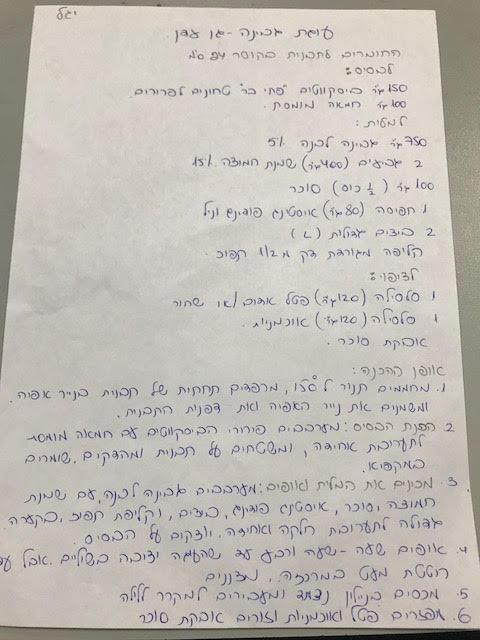 יגאל
עוגת גבינה - גן עדן
החומרים לתבנית בקוטר 24 ס"מ
לבסיס:
150 גר' ביסקוויטים "פתי בר" טחונים לפרורים.
100 גר' חמאה מומסת.
למלית:
750 גר' גבינה לבנה 5%
2 גביעים (400 גר') שמנת חמוצה 15%
100 גר' (½ כוס) סוכר
1 חפיסה (80 גר') אינסטנט פודינג וניל
2 ביצים גדולות (L)
קליפה מגורדת דק מ 1/2 תפוז.
לציפוי:
1 סלסילה (120 גר') פטל אדום ו/או שחור
1 סלסילה (120 גר') אוכמניות.
אבקת סוכר.
אופן ההכנה:
1. מחממים תנור ל 150°, מרפדים תחתית של תבנית בנייר אפיה.
ומשמנים את נייר האפיה ואת דפנות התבנית.
2. הכנת הבסיס: מערבבים פירורי הביסקוויטים עם חמאה מומסת
לתערובת אחידה, ומשטחים על תבנית ומהדקים. שומרים
במקפיא.
3. מכינים את המלית ואופים: מערבבים גבינה לבנה, עם שמנת
חמוצה, סוכר, אינסטנט פודינג, ביצים, וקליפת תפוז, בקערה
גדולה לתערובת חלקה ואחידה. ויוצקים על הבסיס.
4. אופים שעה - שעה ורבע עד שהעוגה יציבה בשוליים. אבל עדיין
רוטטת מעט במרכזה. מצננים
5. מכסים בניילון נצמד ומעבירים למקרר ללילה
6. מפזרים פטל ואוכמניות וזורים אבקת סוכר